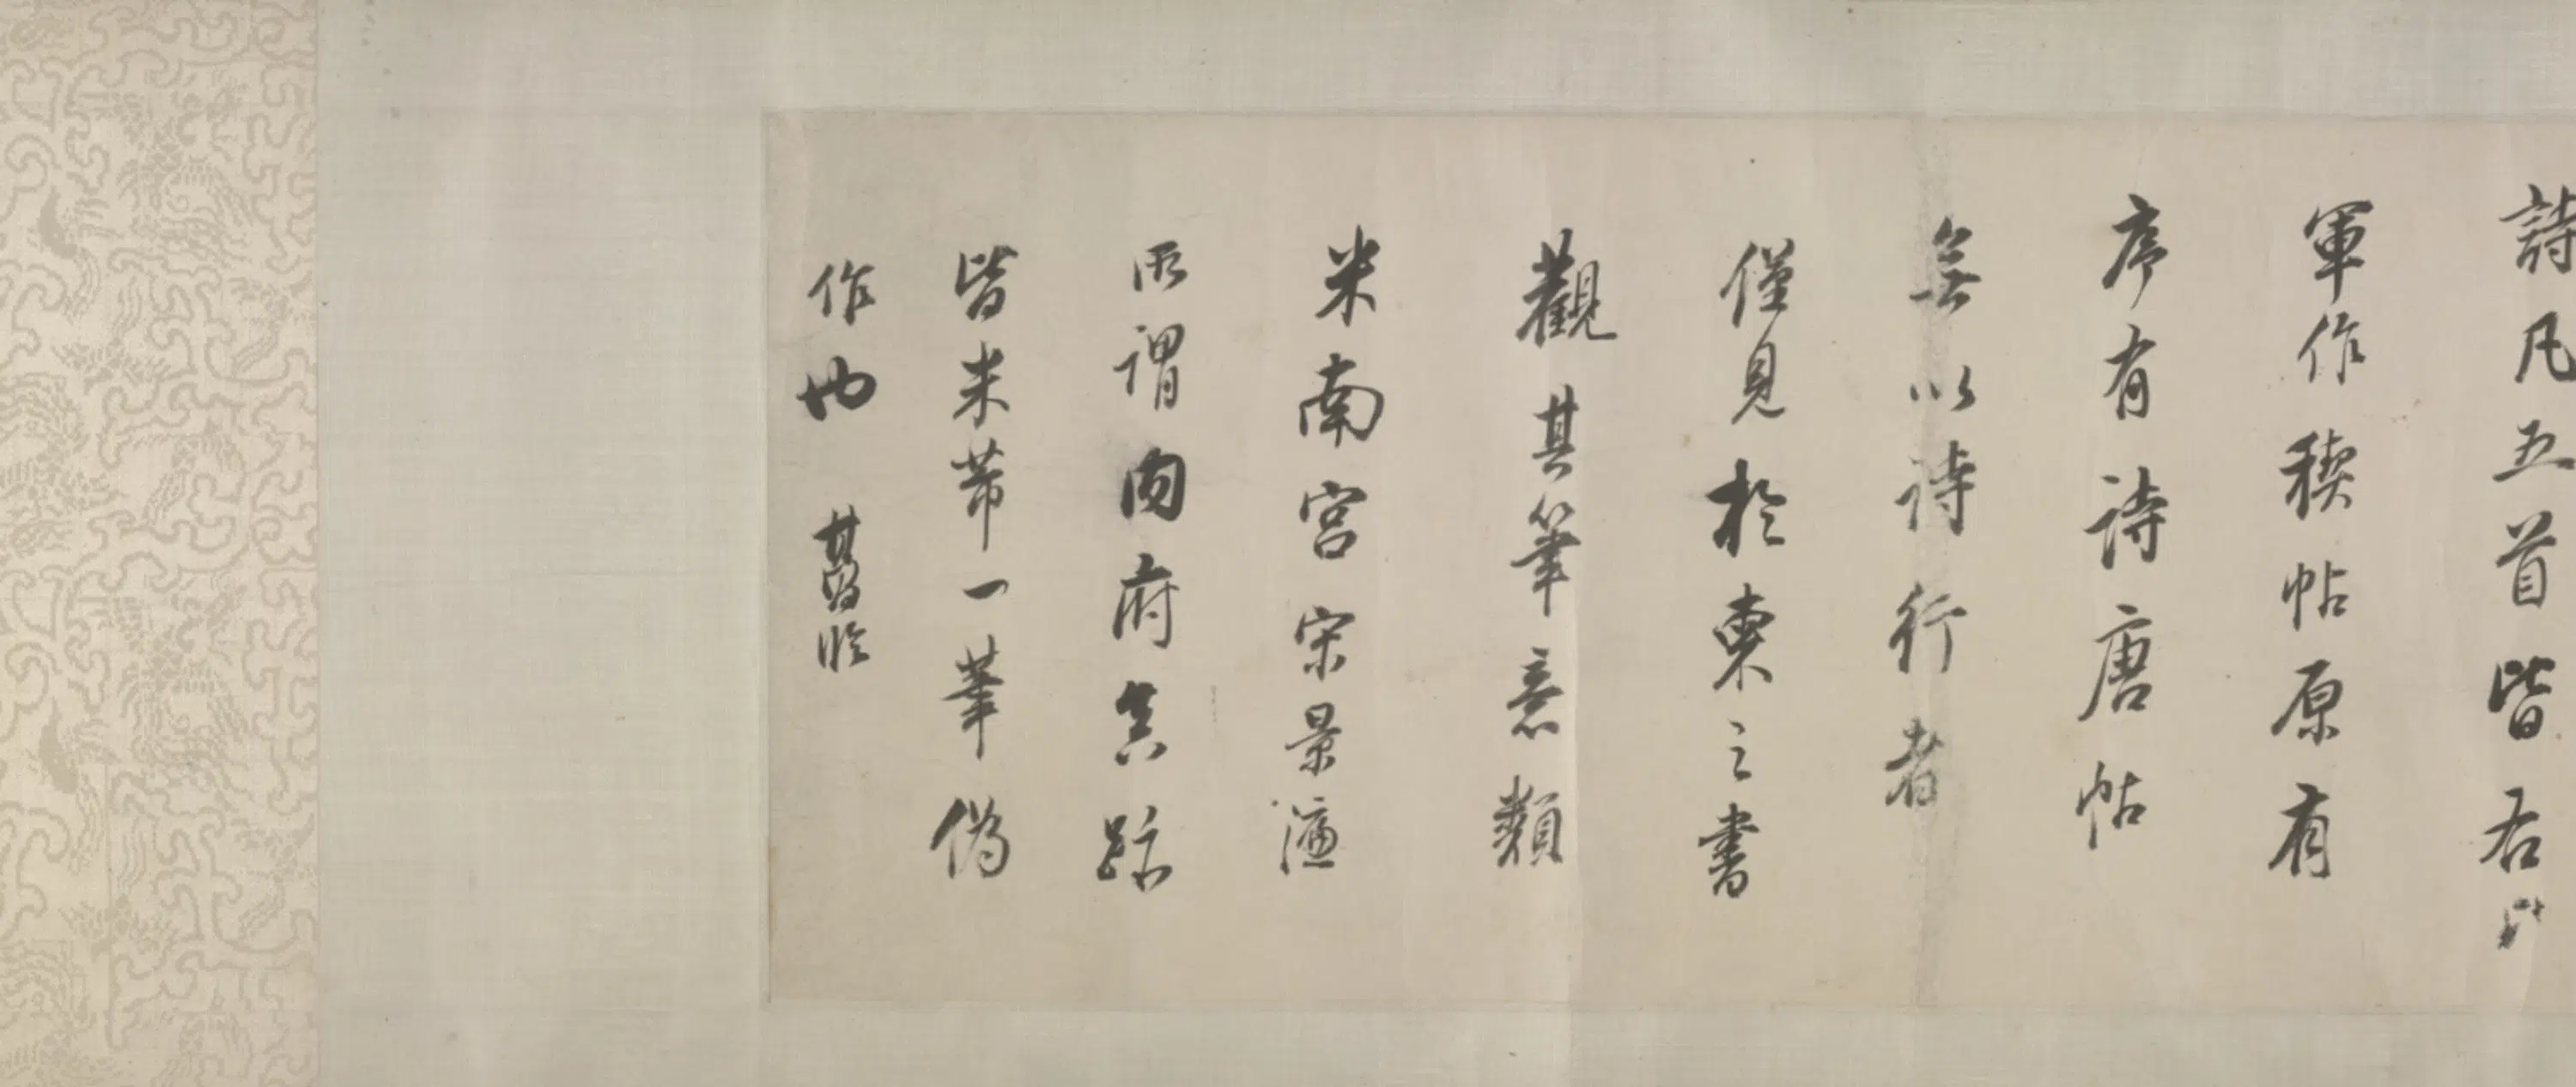 詩凡五首皆右
軍作禊帖原有
序有詩唐帖
無以詩行者
僅見於柬之書
觀其筆意類
米南宮宋景濂
所謂内府真跡
皆米芾一筆偽
作也 其昌臨